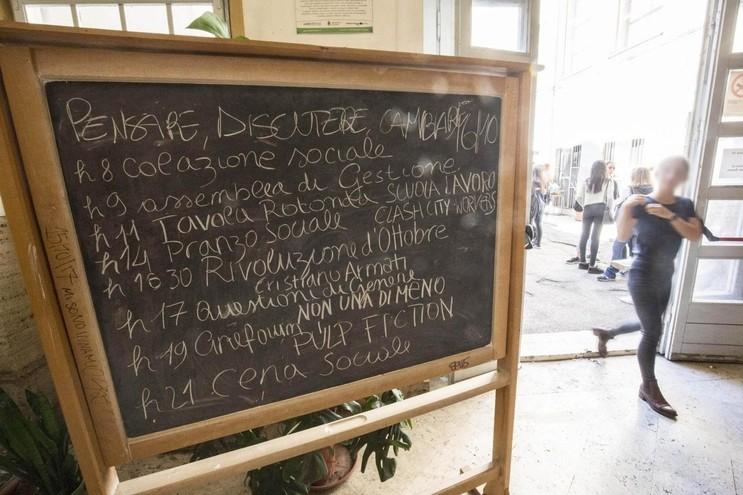 PENSARE, DISCUTERE, CAMBIARE 16/10
h 8 colazione sociale
h 9 assemblea di Gestione
h 11 Tavola Rotonda SCUOLA LAVORO
CLASH CITY WORKERS
h 14 Pranzo Sociale
h 16 30 Rivoluzione d'Ottobre
Cristiano Armati
h 17 Questioni di Genere
NON UNA DI MENO
h 19 Cineforum
PULP FICTION
h 21 Cena Sociale